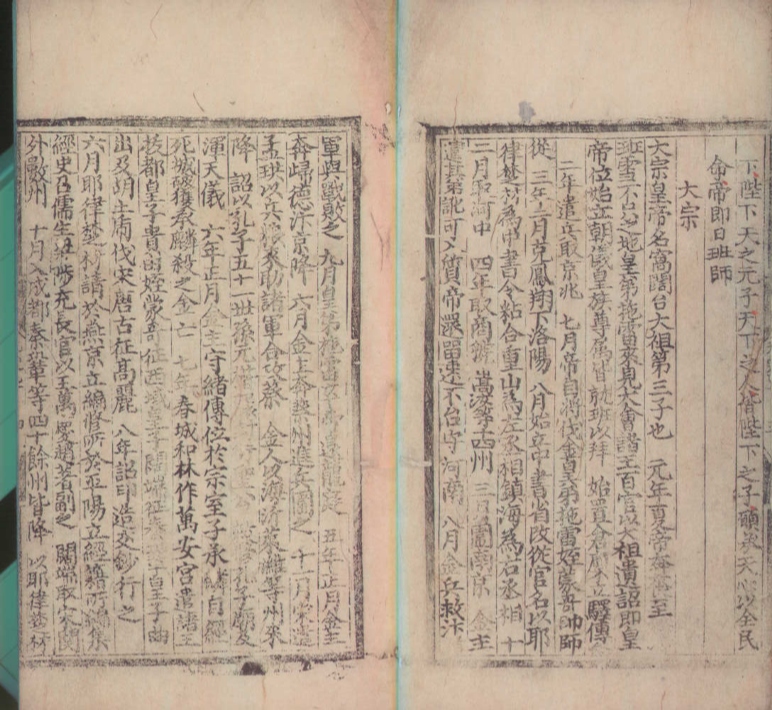 下陛下天之元子天下之人皆陛下之子願矣天心以全民
命帝即日班師
大宗
大宗皇帝名窩闊台大祖第三子也 元年夏帝奔喪至
班雪不台之地皇弟拖雷來見大會諸王百官以大祖遺詔即皇
帝位始立朝儀皇族尊属皆就班以拜 始置倉廩立驛傳
二年遣兵取京兆 七月帝自将伐金皇弟拖雷姪蒙哥帥師
從 三年二月克鳳翔下洛陽 八月始立中書省改從官名以耶
律楚材為中書令粘合重山為左丞相鎮海為右丞相 十
二月取河中 四年取 等西州 三月圍南京 金主
遣其弟訛可入質帝還留速不台守河南 八月金兵救汴
軍與戰敗之 九月皇弟拖雷 五年正月金主
奔歸德汴京降 六月金主奔蔡州進兵圍之 十一月宋遣
孟珙以兵 來助諸軍合攻蔡 金人以海沂萊濰等州來
降 詔以孔子五十一世孫元措
渾天儀 六年正月金主守緒傳位於宗室子承 自經
死城破獲承麟殺之金亡 七年春城和林作萬安宮遣諸王
拔都皇子貴由姪蒙哥征西域皇子闊端征 皇子曲
出及胡土虎伐宋唐古征高麗 八年詔印造交鈔行之
六月耶律楚材請於燕京立編修所於平陽立經籍所編集
經史召儒生梁陟充長官以王萬慶趙著副之 闊端取宋関
外數州 十月入成都秦鞏等四十餘州皆降 以耶律楚材